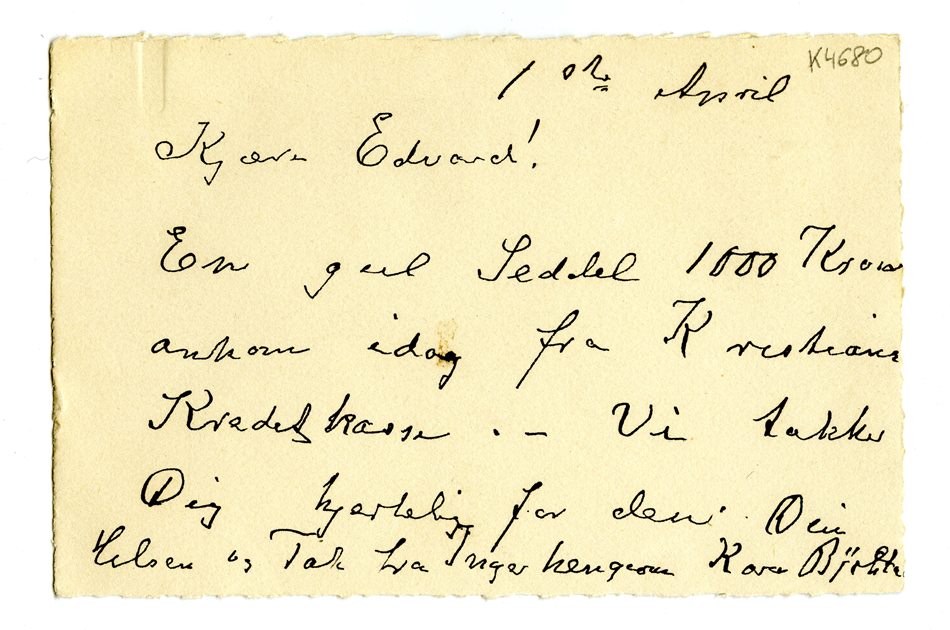 K4680
1ste April
Kjære Edvard!
En gul Seddel 1000 Kron
ankom idag fra Kristiania
Kreditkasse. – Vi takker
Dig hjertelig for den. Din
Hilsen og Tak fra Inger Karen Bjølsta